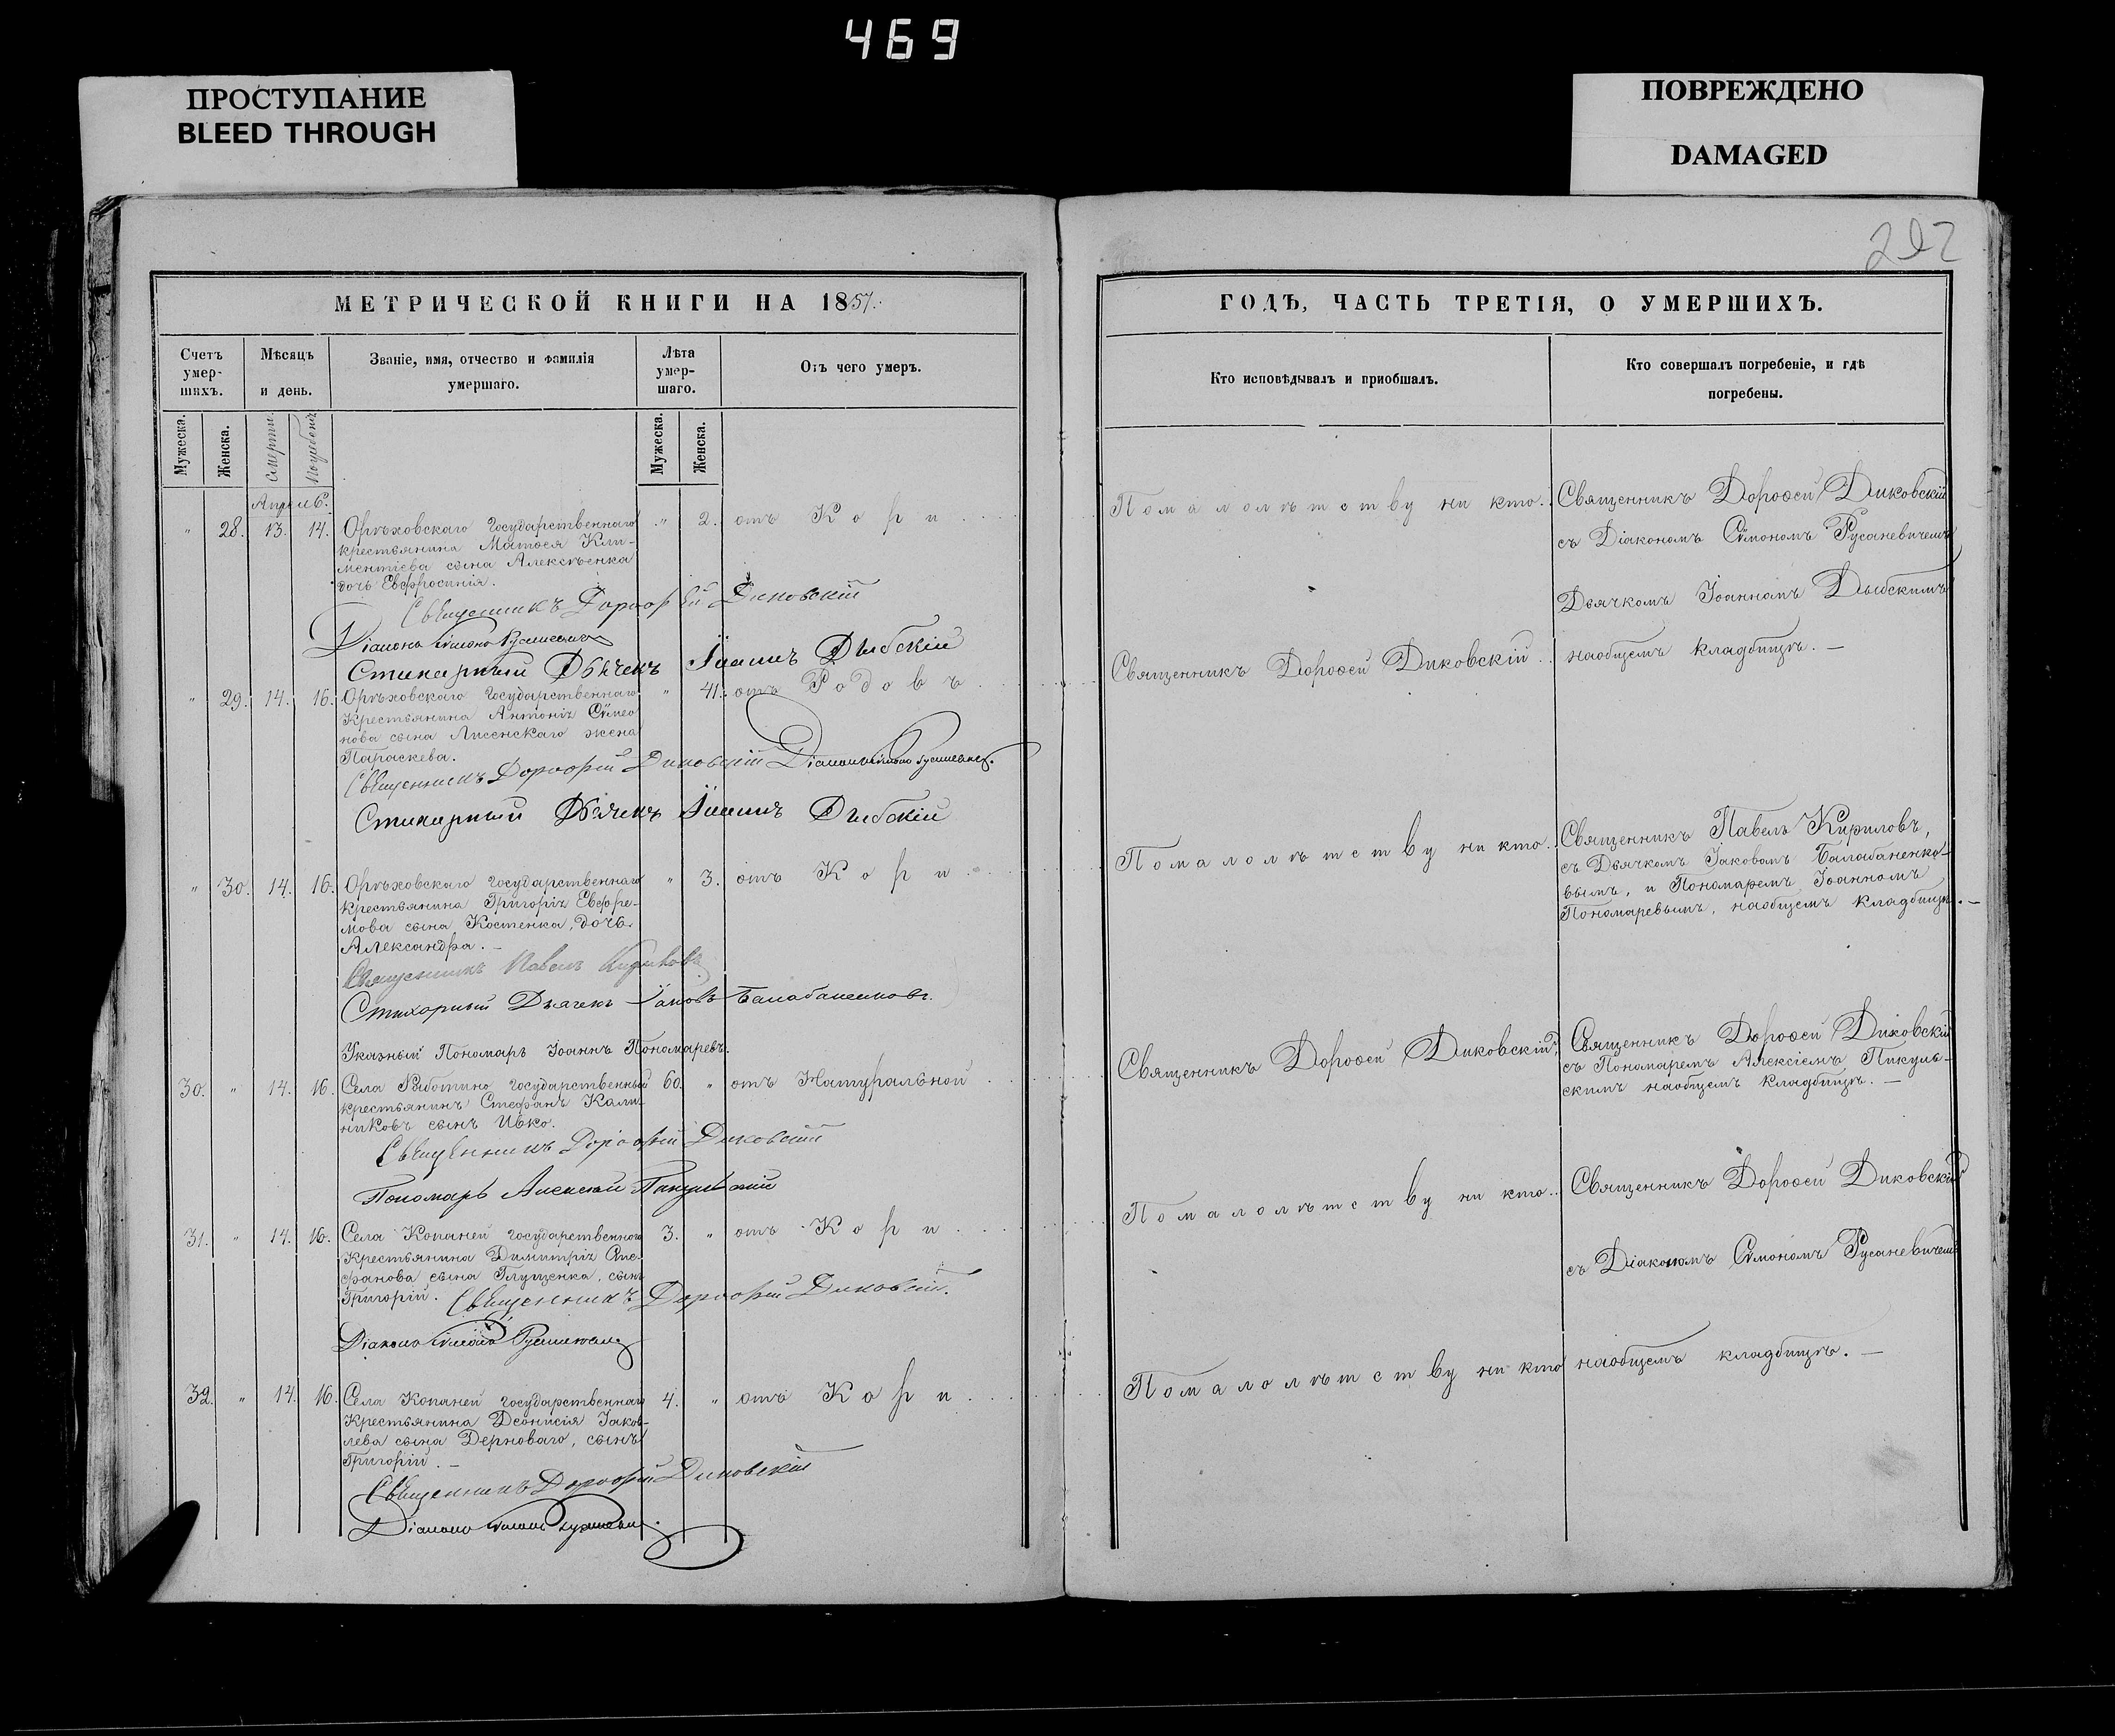 469
ПРОСТУПАНИЕ
BLEED THROUGH
ПОВРЕЖДЕНО
DAMAGED
МЕТРИЧЕСКОЙ КНИГИ НА 1857.
Счетъ умер-шихъ.
Мѣсяцъ и день.
Званіе, имя, отчество и фамилія умершаго.
Лѣта умер-шаго.
Отъ чего умеръ.
Мужеска.
Женска.
Смерти.
Погребенія
Мужеска.
Женска.
Апрель.
" 28. 13. 14. Орѣховскаго Государственнаго " 2. отъ Кори
крестьянина Матѳея Кли-
ментіева сына Алексѣенка
дочь Евфросинія.
Священникъ Дорофей Диковскій
Діаконъ Симонъ Русаневичъ
Стихарный Дьячекъ Іоаннъ Дыбскій
" 29. 14. 16. Орѣховскаго Государственнаго " 41. отъ Родовъ
Крестьянина Антонія Сѵмео
нова сына Лисенскаго жена
Параскева.
Священникъ Дорофей Диковскій Діаконъ Симонъ Русаневичъ.
Стихарный Дьячекъ Іоаннъ Дыбскій
" 30. 14. 16. Орѣховскаго Государственнаго " 3. отъ Кори
крестьянина Григорія Евфре-
мова сына Костенка, дочь
Александра. -
Священникъ Павелъ Кириловъ
Стихарный Дьячекъ Іаковъ Балабаненковъ.
Указный Пономарь Іоаннъ Пономаревъ.
30. " 14. 16. Села Работино государственный 60. " отъ Натуральной
крестьянинъ Стефанъ Кали-
никовъ сынъ Ивко.
Священникъ Дорофей Диковскій
Пономарь Алексѣй Пикульскій
31. " 14. 16. Села Копаней государственнаго 3. " отъ Кори
Крестьянина Димитрія Сте-
фанова сына Глущенка, сынъ
Григорій. Священникъ Дорофей Диковскій.
Діаконъ Симонъ Русаневичъ
32. " 14. 16. Села Копаней государственнаго 4. " отъ Кори
Крестьянина Деонисія Іаков-
лева сына Дерноваго, сынъ
Григорій. -
Священникъ Дорофей Диковскій
Діаконъ Симонъ Русаневичъ.
ГОДЪ, ЧАСТЬ ТРЕТІЯ, О УМЕРШИХЪ.
Кто исповѣдывалъ и пріобщалъ.
Кто совершалъ погребеніе, и гдѣ
погребены.
Помалолѣтству ни кто. Священникъ Дороѳей Диковскій
съ Діакономъ Сѵмономъ Русаневичемъ
Дьячкомъ Іоанномъ Дыбскимъ
Священникъ Дороѳей Диковскій. наобщемъ кладбищѣ. -
Помалолѣтству ни кто. Священникъ Павелъ Кириловъ,
съ Дьячкомъ Іаковомъ Балабаненко-
вымъ, и Пономаремъ Іоанномъ
Пономаревымъ, наобщемъ кладбищѣ. -
Священникъ Дороѳей Диковскій. Священникъ Дороѳей Диковскій
съ Пономаремъ Алексіемъ Пикуль-
скимъ наобщемъ кладбищѣ. -
Помалолѣтству ни кто. Священникъ Дороѳей Диковскій
съ Діакономъ Сѵмономъ Русаневичемъ
Помалолѣтству ни кто наобщемъ кладбищѣ. -